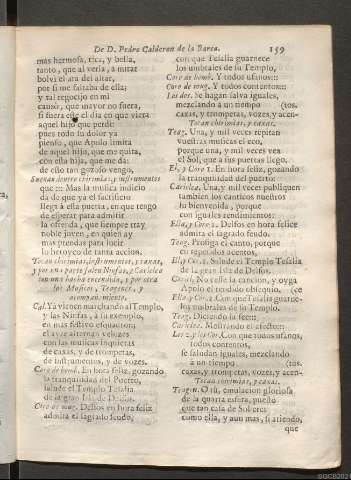 De D. Pedro Calderon de la Barca. 159
mas hermosa, rica, y bella,
tanto, que al verla, à mirar
bolvi el ara del altar,
por si me faltaba de ella;
y tal regocijo en mi
causò, que mayor no fuera,
si fuera este el dia en que viera
aquel hijo que perdi:
pues todo su dolor ya
pienso, que Apolo imita
de aquel hijo, que me quita,
con esta hija, que me da:
de esto tan gozoso vengo,
Suenan dentro chirimias, y instrumentos
que ::: Mas la musica indicio
da de que ya el sacrificio
llega à esta puerta, en que tengo
de esperar para admitir
la ofrenda, que siempre tray
noble joven, en quien ay
mas prendas para lucir
lo heroyco de tanta accion.
Tocan chirimias, instrumentos, y caxas,
y por una parte salen Ninfas, y Cariclea
con una hacha encendida, y por otra
los Musicos, Teagenes, y
acompañamiento.
Cal. Ya vienen marchando al Templo,
y las Ninfas, à su exemplo,
en mas festivo esquadron
el ayre alternan veloces
con las musicas inquietas
de caxas, y de trompetas,
de instrumentos, y de voces.
Coro de homb. En hora feliz, gozando
la tranquilidad del Puerto,
salude el Templo Tesalia
de la gran Isla de Delfos.
Coro de mug. Delfos en hora feliz
admita el sagrado feudo,
con que Tesalia guarnece
los umbrales de su Templo,
Coro de homb. Y todos usanos:::
Coro de mug. Y todos contentos:::
Los dos. se hagan salva iguales,
mezclando à un tiempo (tos.
caxas, y trompetas, vozes, y acen-
Tocan chirimias, y caxas.
Teag. Una, y mil veces repitan
vuestras musicas el eco,
porque una, y mil veces vea
el Sol, que a sus puertas llego.
El, y Coro 1. En hora feliz, gozando
la tranquilidad del puerto:
Cariclea. Una, y mil veces publiquen
tambien los canticos nuestros
su bienvenida, porque
con iguales rendimientos:
Ella, y Coro 2. Delfos en hora felice
admita el sagrado feudo.
Teag. Prosiga el canto, porque
en repetidos acentos,
El, y Coro 1. Salude el Templo Tesalia
de la gran Isla de Delfos.
Caric. No cesse la cancion, y oyga
Apolo el rendido obsequio, (ce
Ella, y Cor. 2. Con que Tesalia guarne-
los umbrales de su Templo.
Teag. Diciendo la fee:::
Cariclea. Mostrando el afecto:::
Los 2. y los Cor. Con que todos usanos,
todos contentos,
se saludan iguales, mezclando
à un tiempo (tos.
caxas, y trompetas, vozes, y acen-
Tocan chirimias, y caxas.
Teagen. O tu, emulacion gloriosa
de la quarta esfera, puesto
que tan casa de Sol eres
como ella, y aun mas, si atiendo,
que